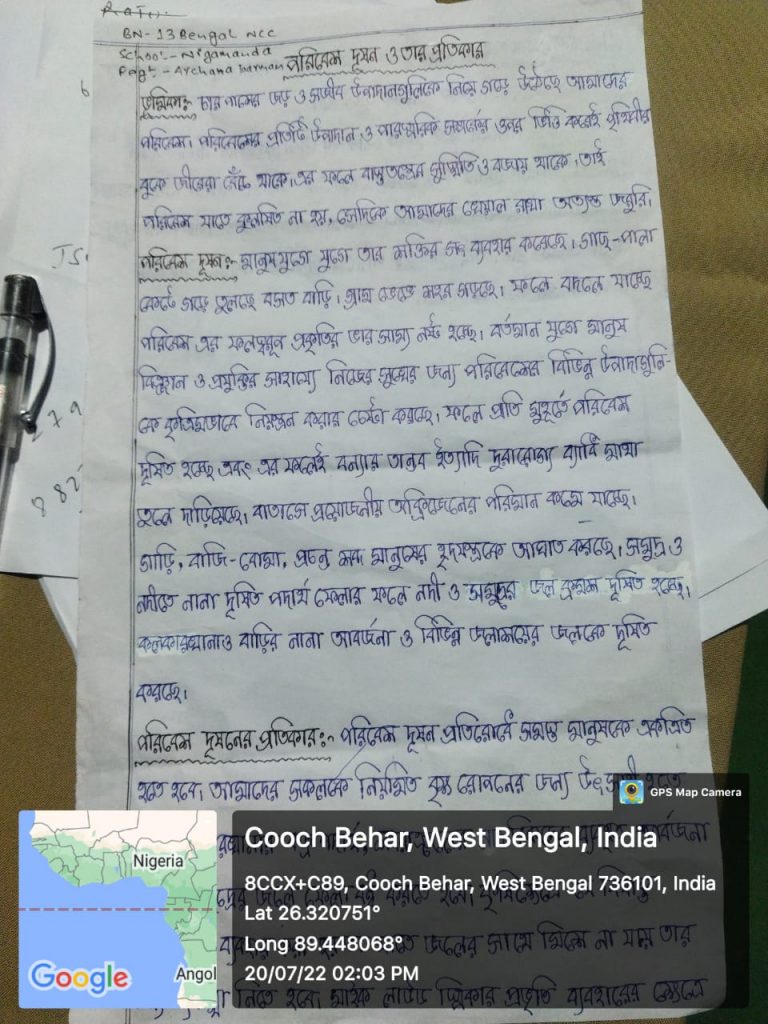 BN- 13 Bengal NCC
School - Nigamanda
Regt - Archana barman
পরিবেশ দূষন ও তার প্রতিকার
ভূমিকা:- চার পাশের জড় ও সজীব উপাদানগুলিকে নিয়ে গড়ে উঠেছে আমাদের
পরিবেশ। পরিবেশের প্রতিটি উপাদান ও পারস্পরিক সম্পর্কের ওপর ভিত্তি করেই পৃথিবীর
বুকে জীবেরা বেঁচে থাকে। এর ফলে বাস্তুতন্ত্রের সুস্থিতি ও বজায় থাকে। তাই
পরিবেশ যাতে কুলষিত না হয়, সেদিকে আমাদের খেয়াল রাখা অত্যন্ত জরুরি।
পরিবেশ দূষন:- মানুষ যুগে যুগে তার শক্তির সৎ ব্যবহার করেছে। গাছ-পালা
কেটে গড়ে তুলছে বসত বাড়ি। গ্রাম ভেঙে শহর গড়ছে। ফলে বদলে যাচ্ছে
পরিবেশ এর ফলস্বরূপ প্রকৃতির ভার সাম্য নষ্ট হচ্ছে। বর্তমান যুগে মানুষ
বিজ্ঞান ও প্রযুক্তির সাহায্যে নিজের সুখের জন্য পরিবেশের বিভিন্ন উপাদাগুলি-
কে কৃত্রিমভাবে নিয়ন্ত্রন করার চেষ্টা করছে। ফলে প্রতি মুহূর্তে পরিবেশ
দূষিত হচ্ছে এবং এর ফলেই বন্যার তান্ডব ইত্যাদি দুরারোগ্য ব্যাধি মাথা
তুলে দাড়িয়েছে। বাতাসে প্রয়োজনীয় অক্সিজেনের পরিমান কমে যাচ্ছে।
গাড়ি, বাজি-বোমা, প্রচন্ড শব্দ মানুষের হৃদযন্ত্রকে আঘাত করছে। সমুদ্র ও
নদীতে নানা দূষিত পদার্থ ফেলার ফলে নদী ও সমুদ্রর জল ক্রমশ দূষিত হচ্ছে।
কলকারখানাও বাড়ির নানা আবর্জনা ও বিভিন্ন জলাশয়ের জলকে দূষিত
করছে।
পরিবেশ দূষনের প্রতিকার:- পরিবেশ দূষন প্রতিরোধে সমস্ত মানুষকে একত্রিত
হতে হবে। আমাদের সকলকে নিয়মিত বৃক্ষ রোপনের জন্য
জলের সাথে মিশে না যায় তার
নিতে হবে। মাইক প্রভৃতি ব্যবহারের ক্ষেত্রে
GPS Map Camera
Cooch Behar, West Bengal, India
8CCX+C89, Cooch Behar, West Bengal 736101, India
Lat 26.320751°
Long 89.448068°
20/07/22 02:03 PM
Nigeria
Angol
Google